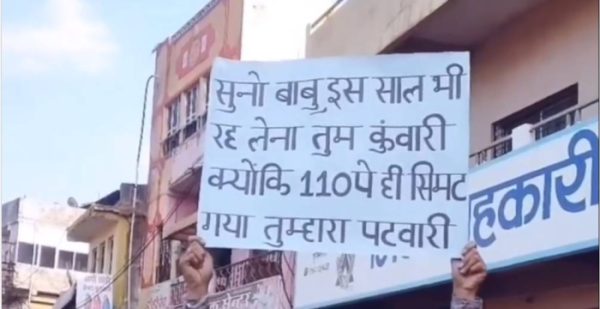 सुनो बाबु इस साल भी
रह लेना तुम कुंवारी
क्योंकि 110 पे ही सिमट
गया तुम्हारा पटवारी
हकारी